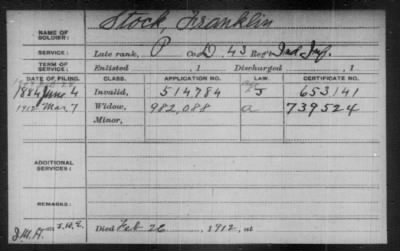 NAME OF SOLDIER: Stock, Franklin
SERVICE: Late rank, P Co. D, 43 Reg't Ind Inf.
TERM OF SERVICE: Enlisted , 1 Discharged , 1
DATE OF FILING. CLASS. APPLICATION NO. LAW. CERTIFICATE NO.
1884 June 4 Invalid, 514,784 J 653141
1912 Mar 7 Widow, 982,088 a 739524
Minor,
ADDITIONAL SERVICES:
REMARKS:
Died Feb 26 , 1912, at